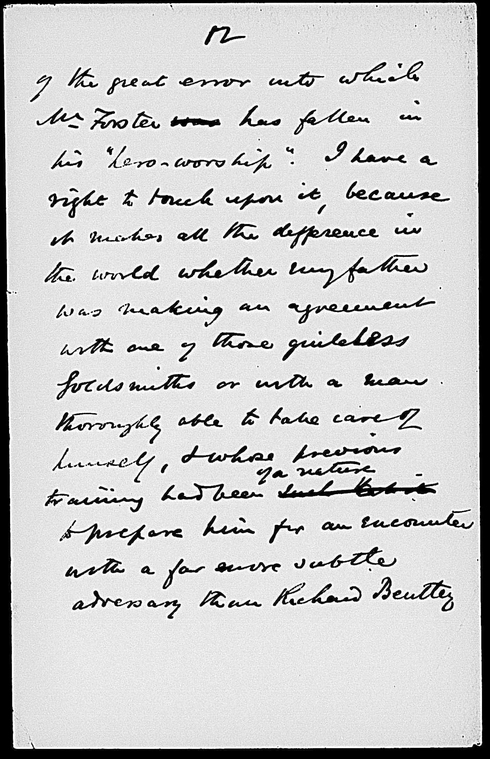 12
of the great error into which
Mr Forster was has fallen in
his "hero-worship". I have a
right to touch upon it, because
it makes all the difference in
the world whether my father
was making an agreement
with one of those guileless
Goldsmiths or with a man
thoroughly able to take care of
himself, & whose previous
of a nature
training had been such that it
to prepare him for an encounter
with a far more subtle
adversary than Richard Bentley